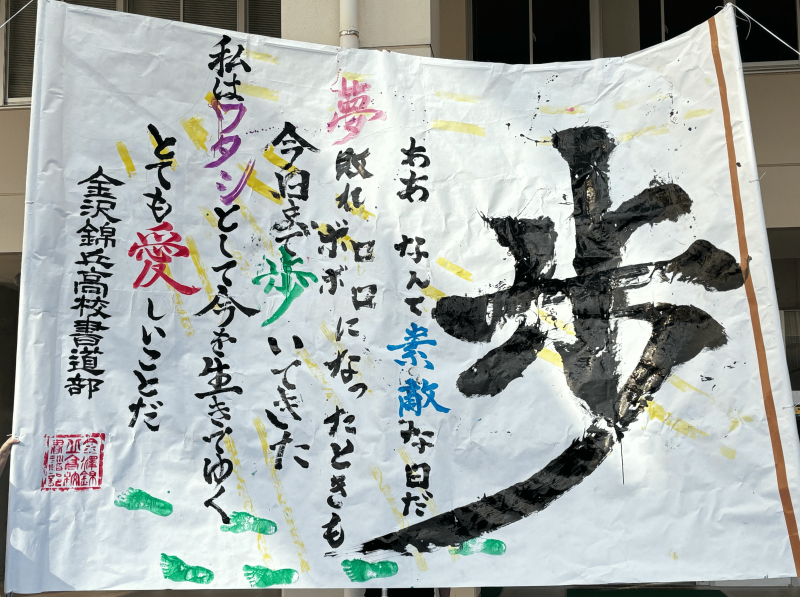 歩
ああ なんて素敵な日だ
夢敗れボロボロになったときも
今日まで歩いてきた
私はワタシとして今を生きてゆく
とても愛しいことだ
金沢錦丘高校書道部